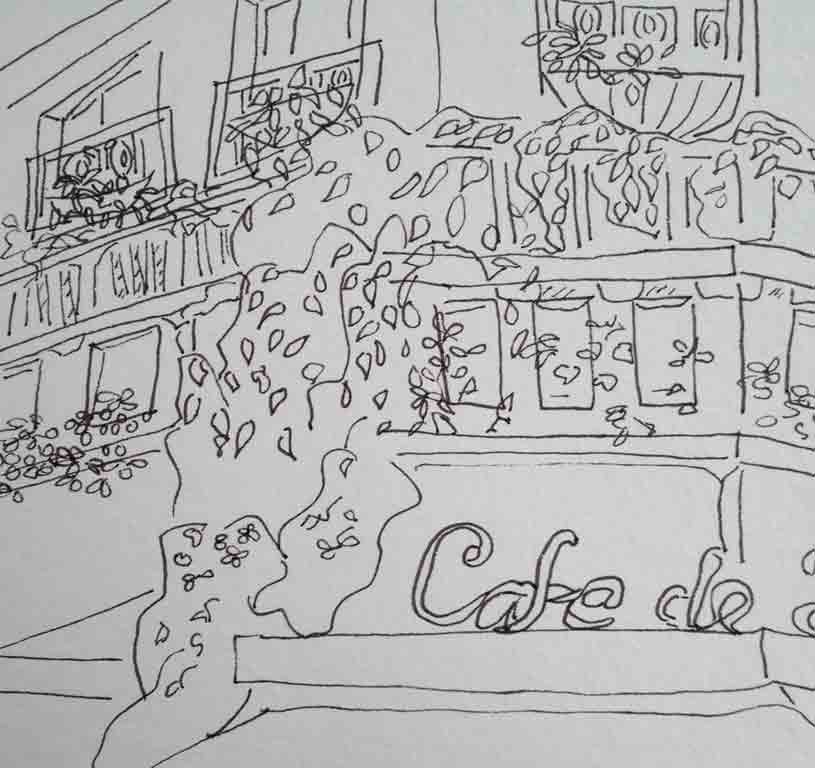 Cafe de